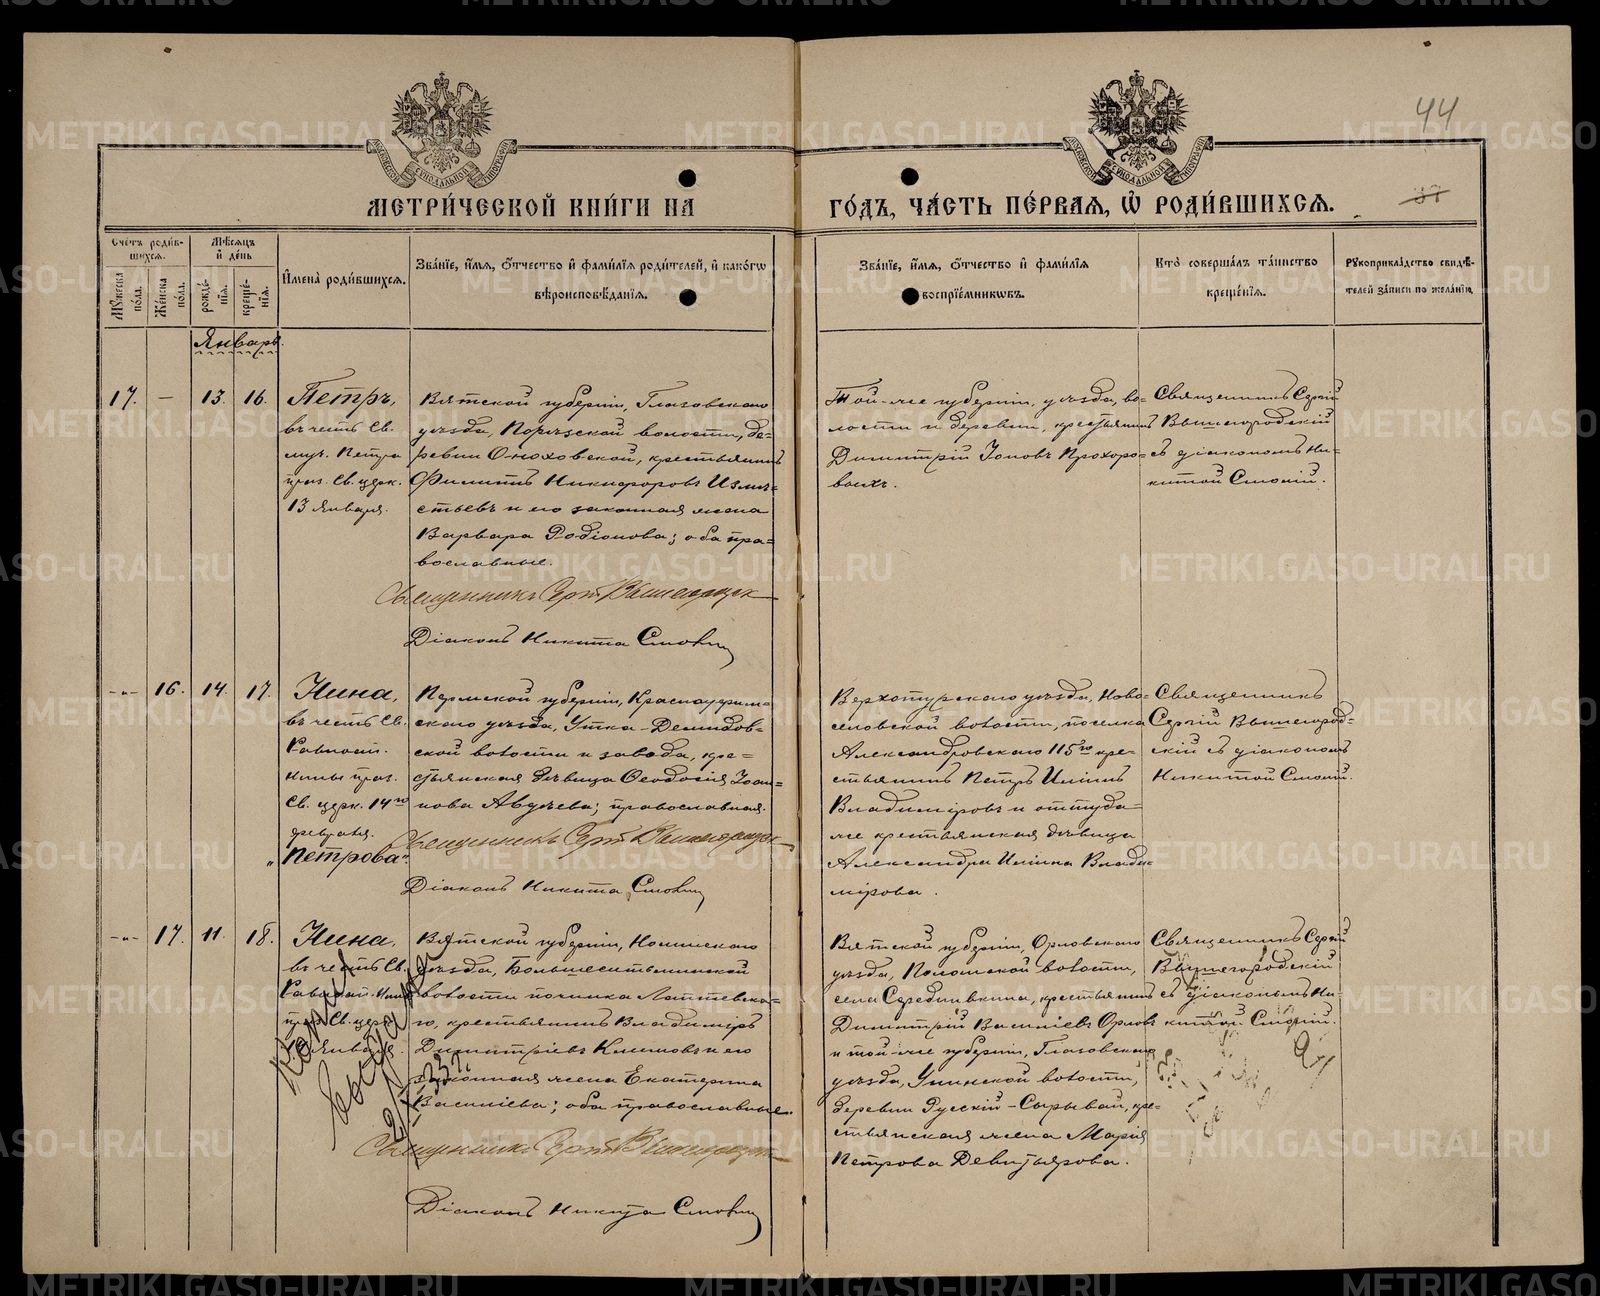 44
37
МЕТРИ́ЧЕСКОЙ КНИ́ГИ НА
ГО́ДЪ, ЧА́СТЬ ПЕ́РВАЯ, Ѡ҆ РОДИ́ВШИХСЯ.
Сче́тъ роди́в-
шихся.
Мꙋ́жеска по́ла.
Же́нска по́ла.
Мѣ́сяцъ и де́нь
рожде́нія.
креще́нія.
И҆мена̀ роди́вшихся.
Зва́нїе, и҆́мя, ѻ҆́тчество и҆ фами́лїя роди́телей, и҆ како́гѡ
вѣроисповѣ́данїя.
Зва́нїе, и҆́мя, ѻ҆́тчество и҆ фами́лїя
воспрїе́мниковъ.
Кто̀ соверша́лъ та́инство
креще́нїя.
Рꙋкоприкла́дство свидѣ́-
телей за́писи по жела́нїю.
Январь.
17. — 13. 16.
Петръ,
въ честь Св.
муч. Петра
праз. Св. церк.
13 Января.
Вятской губерніи, Глазовскаго
уѣзда, волости, де-
ревни Оноховской, крестьянинъ
Филиппъ Никифоровъ Измѣ-
стьевъ и его законная жена
Варвара Родіонова; оба пра-
вославные.
Священникъ Сергій Вышегородскій
Діаконъ Никита Смовій
Той-же губерніи, уѣзда, во-
лости и деревни, крестьянинъ
Димитрій Іоновъ Прохоро-
выхъ.
Священникъ Сергій
Вышегородскій
съ діакономъ Ни-
китой
-„- 16. 14. 17.
Нина,
въ честь Св.
Равноап.
Нины праз.
Св. церк. 14го
февраля.
„Петрова“
Пермской губерніи, Красноуфим-
скаго уѣзда, Утка-Демидов-
ской волости и завода, кре-
стьянская дѣвица Ѳеодосія Іоан-
нова Авдѣева; православная.
Священникъ Сергій Вышегородскій
Діаконъ Никита
Верхотурскаго уѣзда, Ново-
селовской волости, поселка
Александровскаго 115го кре-
стьянинъ Петръ Ильинъ
Владиміровъ и оттуда-
же крестьянская дѣвица
Александра Ильина Влади-
мірова.
Священникъ
Сергій Вышегород-
скій съ діакономъ
Никитой
-„- 17. 11. 18.
Нина,
въ честь Св.
Равноап. Нины
праз. Св. церк.
Января.
Вятской губерніи, Нолинскаго
уѣзда,
волости починка Лаптевска-
го, крестьянинъ Владиміръ
Димитріевъ Климовъ и его
законная жена Екатерина
Василіева; оба православные.
Священникъ Сергій Вышегородскій
Діаконъ Никита
Вятской губерніи, Орловскаго
уѣзда, Поломской волости,
села Серединкина, крестьянинъ
Димитрій Василіевъ Орловъ
и той-же губерніи, Глазовскаго
уѣзда, Унинской волости,
деревни Русскій-Сырывай, кре-
стьянская жена Марія
Петрова Девитьярова.
Священникъ Сергій
Вышегородскій
съ діакономъ Ни-
китой
METRIKI.GASO-URAL.RU